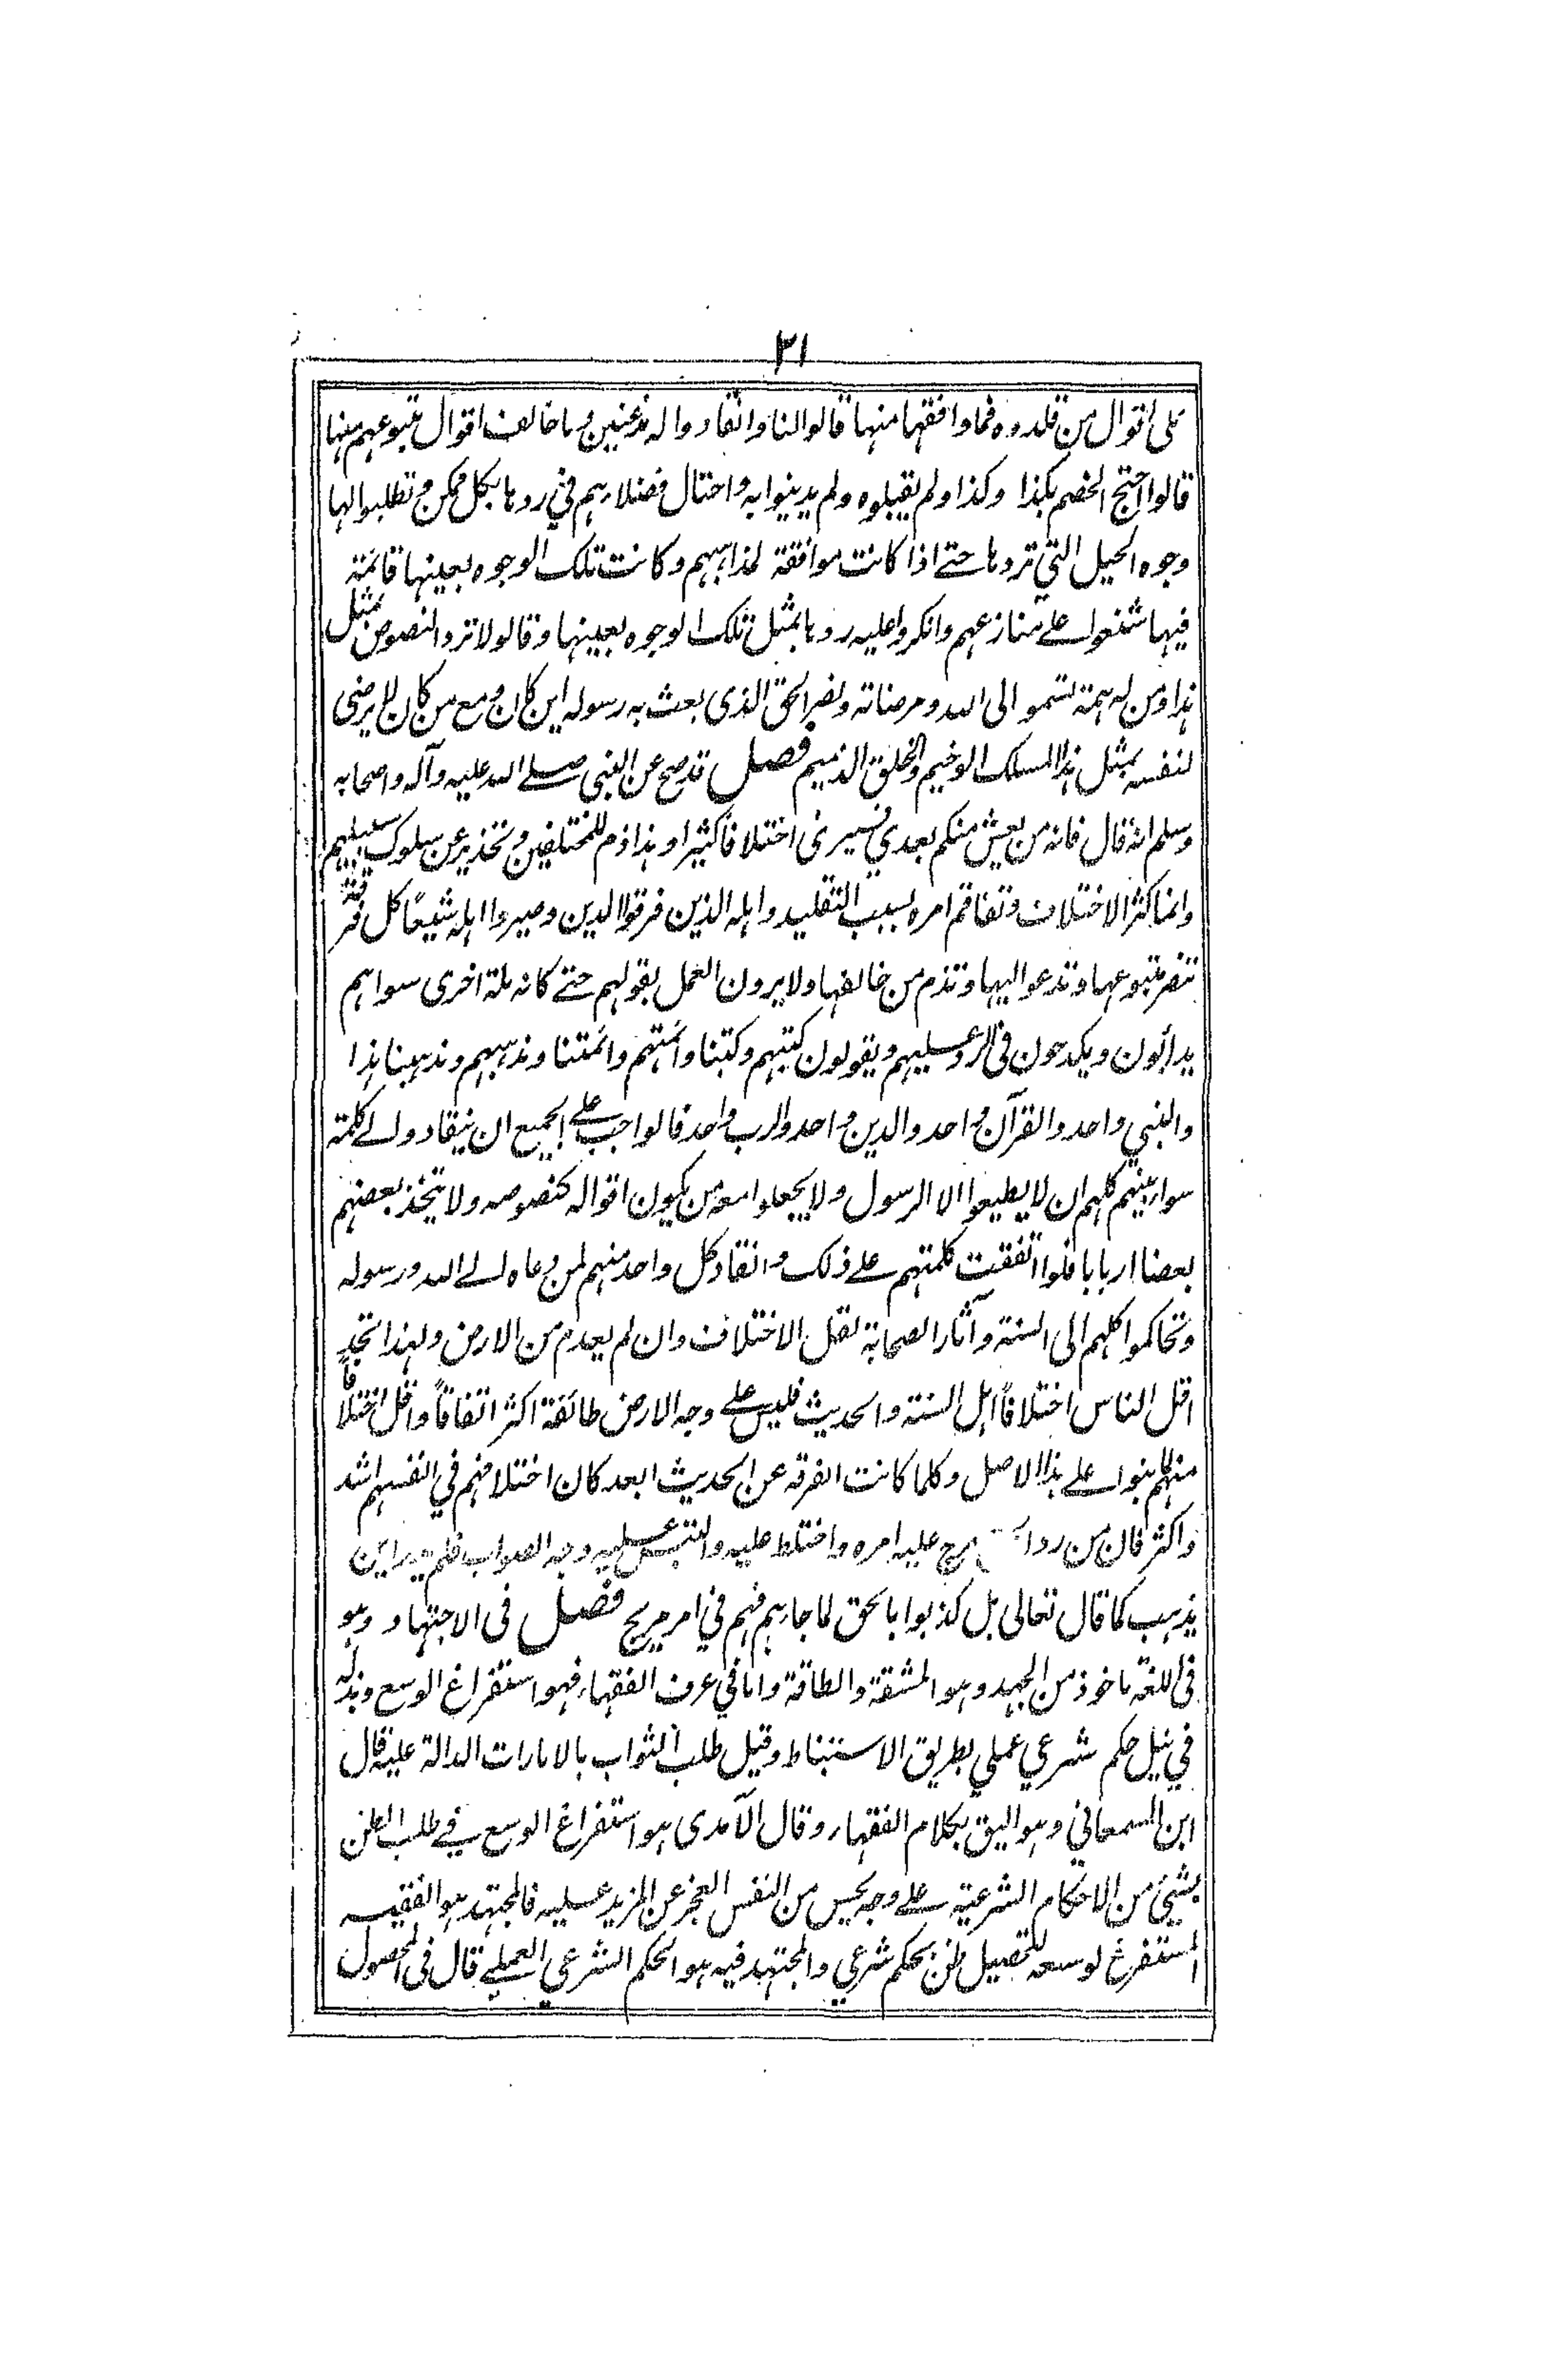 ٣١
على اقوال من قلدوه فما وافقها منها قالوا لنا وانقادوا له مذعنين وما خالف اقوال متبوعهم منها
قالوا احتج الخصم بكذا وكذا ولم يقبلوه ولم يدينوا به واحتال فضلاءهم في ردها بكل ممكن وتطلبوا لها
وجوه الحيل التي تردها حتے اذا كانت موافقة لمذاهبهم وكانت تلك الوجوه بعينها قائمة
فيها شنعوا علے منازعهم وانكروا عليه ردها بمثل تلك الوجوه بعينها وقالوا لا ترد النصوص بمثل
هذا ومن له همة تسمو الى الله ومرضاته ونصر الحق الذى بعث به رسوله اين كان ومع من كان لا يرضى
لنفسه بمثل هذا المسلك الوخيم والخلق الذميم فصل قد صح عن النبي صلے الله عليه وآله واصحابه
وسلم انه قال فانه من يعش منكم بعدي فسيرى اختلافا كثيرا وهذا ذم للمختلفين وتحذير عن سلوك سبيلهم
وانما كثر الاختلاف وتفاقم امره بسبب التقليد واهله الذين فرقوا الدين وصيروا اهله شيعًا كل فرقة
تنصر متبوعها وتدعو اليها وتذم من خالفها ولا يرون العمل بقولهم حتے كانه ملة اخرى سواهم
يدأبون ويكدحون فى الرد عليهم ويقولون كتبهم وكتبنا وائمتهم وائمتنا ومذهبهم ومذهبنا هذا
والنبي واحد والقرآن واحد والدين واحد والرب واحد فالواجب علے الجميع ان ينقادوا لے كلمة
سواء بينهم كلهم ان لا يطيعوا الا الرسول ولا يجعلوا معه من يكون اقواله كنصوصه ولا يتخذ بعضهم
بعضا اربابا فلو اتفقت كلمتهم علے ذلك وانقاد كل واحد منهم لمن دعاه الے الله ورسوله
وتحاكموا كلهم الى السنة وآثار الصحابة لقل الاختلاف وان لم يعدم من الارض ولهذا تجد
اقل الناس اختلافاً اهل السنة والحديث فليس علے وجه الارض طائفة اكثر اتفاقاً واقل اختلافاً
منهم لما بنوا علے هذا الاصل وكلما كانت الفرقة عن الحديث ابعد كان اختلافهم في انفسهم اشد
واكثر فان من رد ا مرج عليه امره واختلط عليه والتبس عليه وجه الصواب فلم يدر اين
يذهب كما قال تعالى بل كذبوا بالحق لما جاءهم فهم في امر مريج فصل فى الاجتهاد وهو
فى اللغة ماخوذ من الجهد وهو المشقة والطاقة واما في عرف الفقهاء فهو استفراغ الوسع وبذله
في نيل حكم شرعي عملي بطريق الاستنباط وقيل طلب الثواب بالامارات الدالة عليه قال
ابن السمعاني وهو اليق بكلام الفقهاء وقال الآمدى هو استفراغ الوسع فے طلب الظن
بشيئ من الاحكام الشرعية علے وجه يحس من النفس العجز عن المزيد عليه فالمجتهد هو الفقيه
المستفرغ لوسعه لتحصيل ظن بحكم شرعي والمجتهد فيه هو الحكم الشرعي العملے قال فى المحصول